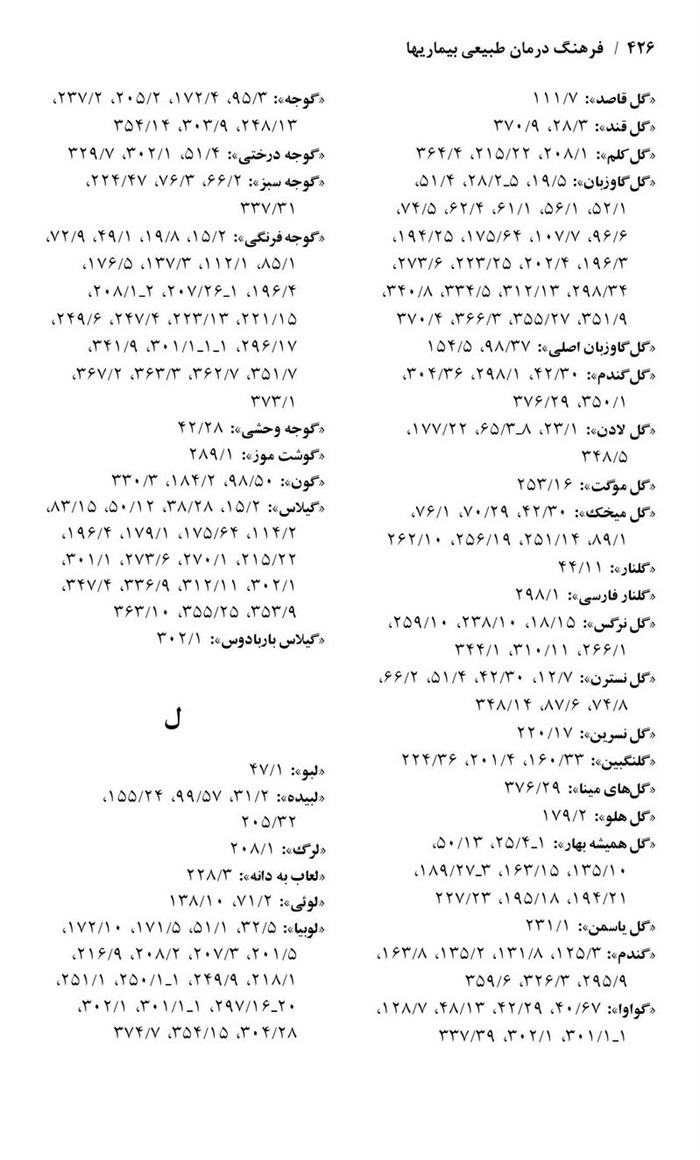 ۴۲۶ / فرهنگ درمان طبیعی بیماریها
«گل قاصد»: ۱۱۱/۷
«گل قند»: ۲۸/۳، ۳۷۰/۹
«گل کلم»: ۲۰۸/۱، ۲۱۵/۲۲، ۳۶۴/۴
«گل گاوزبان»: ۱۹/۵، ۵_۲۸/۲، ۵۱/۴،
۵۲/۱، ۵۶/۱، ۶۱/۱، ۶۲/۴، ۷۴/۵،
۹۶/۶، ۱۰۷/۷، ۱۷۵/۶۴، ۱۹۴/۲۵،
۱۹۶/۳، ۲۰۲/۴، ۲۲۳/۲۵، ۲۷۳/۶،
۲۹۸/۳۴، ۳۱۲/۱۳، ۳۳۴/۵، ۳۴۰/۸،
۳۵۱/۹، ۳۵۵/۲۷، ۳۶۶/۳، ۳۷۰/۴
«گل گاوزبان اصلی»: ۹۸/۳۷، ۱۵۴/۵
«گل گندم»: ۴۲/۳۰، ۲۹۸/۱، ۳۰۴/۳۶،
۳۵۰/۱، ۳۷۶/۲۹
«گل لادن»: ۲۳/۱، ۸_۶۵/۳، ۱۷۷/۲۲،
۳۴۸/۵
«گل موگت»: ۲۵۳/۱۶
«گل میخک»: ۴۲/۳۰، ۷۰/۲۹، ۷۶/۱،
۸۹/۱، ۲۵۱/۱۴، ۲۵۶/۱۹، ۲۶۲/۱۰
«گلنار»: ۴۴/۱۱
«گلنار فارسی»: ۲۹۸/۱
«گل نرگس»: ۱۸/۱۵، ۲۳۸/۱۰، ۲۵۹/۱۰،
۲۶۶/۱، ۳۱۰/۱۱، ۳۴۴/۱
«گل نسترن»: ۱۲/۷، ۴۲/۳۰، ۵۱/۴، ۶۶/۲،
۷۴/۸، ۸۷/۶، ۳۴۸/۱۴
«گل نسرین»: ۲۲۰/۱۷
«گلنگبین»: ۱۶۰/۳۳، ۲۰۱/۴، ۲۲۴/۳۶
«گل‌های مینا»: ۳۷۶/۲۹
«گل هلو»: ۱۷۹/۲
«گل همیشه بهار»: ۱_۲۵/۴، ۵۰/۱۳،
۱۳۵/۱۰، ۱۶۳/۱۵، ۳_۱۸۹/۲۷،
۱۹۴/۲۱، ۱۹۵/۱۸، ۲۲۷/۲۳
«گل یاسمن»: ۲۳۱/۱
«گندم»: ۱۲۵/۳، ۱۳۱/۸، ۱۳۵/۲، ۱۶۳/۸،
۲۹۵/۹، ۳۲۶/۳، ۳۵۹/۶
«گواوا»: ۴۰/۶۷، ۴۲/۲۹، ۴۸/۱۳، ۱۲۸/۷،
۱_۳۰۱/۱، ۳۰۲/۱، ۳۳۷/۳۹
«گوجه»: ۹۵/۳، ۱۷۲/۴، ۲۰۵/۲، ۲۳۷/۲،
۲۴۸/۱۳، ۳۰۳/۹، ۳۵۴/۱۴
«گوجه درختی»: ۵۱/۴، ۳۰۲/۱، ۳۲۹/۷
«گوجه سبز»: ۶۶/۲، ۷۶/۳، ۲۲۴/۴۷،
۳۳۷/۳۱
«گوجه فرنگی»: ۱۵/۲، ۱۹/۸، ۴۹/۱، ۷۲/۹،
۸۵/۱، ۱۱۲/۱، ۱۳۷/۳، ۱۷۶/۵،
۱۹۶/۴، ۱_۲۰۷/۲۶، ۲_۲۰۸/۱،
۲۲۱/۱۵، ۲۲۳/۱۳، ۲۴۷/۴، ۲۴۹/۶،
۲۹۶/۱۷، ۱_۱_۳۰۱/۱، ۳۴۱/۹،
۳۵۱/۷، ۳۶۲/۷، ۳۶۳/۳، ۳۶۷/۲،
۳۷۳/۱
«گوجه وحشی»: ۴۲/۲۸
«گوشت موز»: ۲۸۹/۱
«گون»: ۹۸/۵۰، ۱۸۴/۲، ۳۳۰/۳
«گیلاس»: ۱۵/۲، ۳۸/۲۸، ۵۰/۱۲، ۸۳/۱۵،
۱۱۴/۲، ۱۷۵/۶۴، ۱۷۹/۱، ۱۹۶/۴،
۲۱۵/۲۲، ۲۷۰/۱، ۲۷۳/۶، ۳۰۱/۱،
۳۰۲/۱، ۳۱۲/۱۱، ۳۳۶/۹، ۳۴۷/۴،
۳۵۳/۹، ۳۵۵/۲۵، ۳۶۳/۱۰
«گیلاس باربادوس»: ۳۰۲/۱
ل
«لبو»: ۴۷/۱
«لبیده»: ۳۱/۲، ۹۹/۵۷، ۱۵۵/۲۴،
۲۰۵/۳۲
«لرگ»: ۲۰۸/۱
«لعاب به دانه»: ۲۲۸/۳
«لوئی»: ۷۱/۲، ۱۳۸/۱۰
«لوبیا»: ۳۲/۵، ۵۱/۱، ۱۷۱/۵، ۱۷۲/۱۰،
۲۰۱/۵، ۲۰۷/۳، ۲۰۸/۲، ۲۱۶/۹،
۲۱۸/۱، ۲۴۹/۹، ۱_۲۵۰/۱، ۲۵۱/۱،
۲۰_۲۹۷/۱۶، ۱_۳۰۱/۱، ۳۰۲/۱،
۳۰۴/۲۸، ۳۵۴/۱۵، ۳۷۴/۷